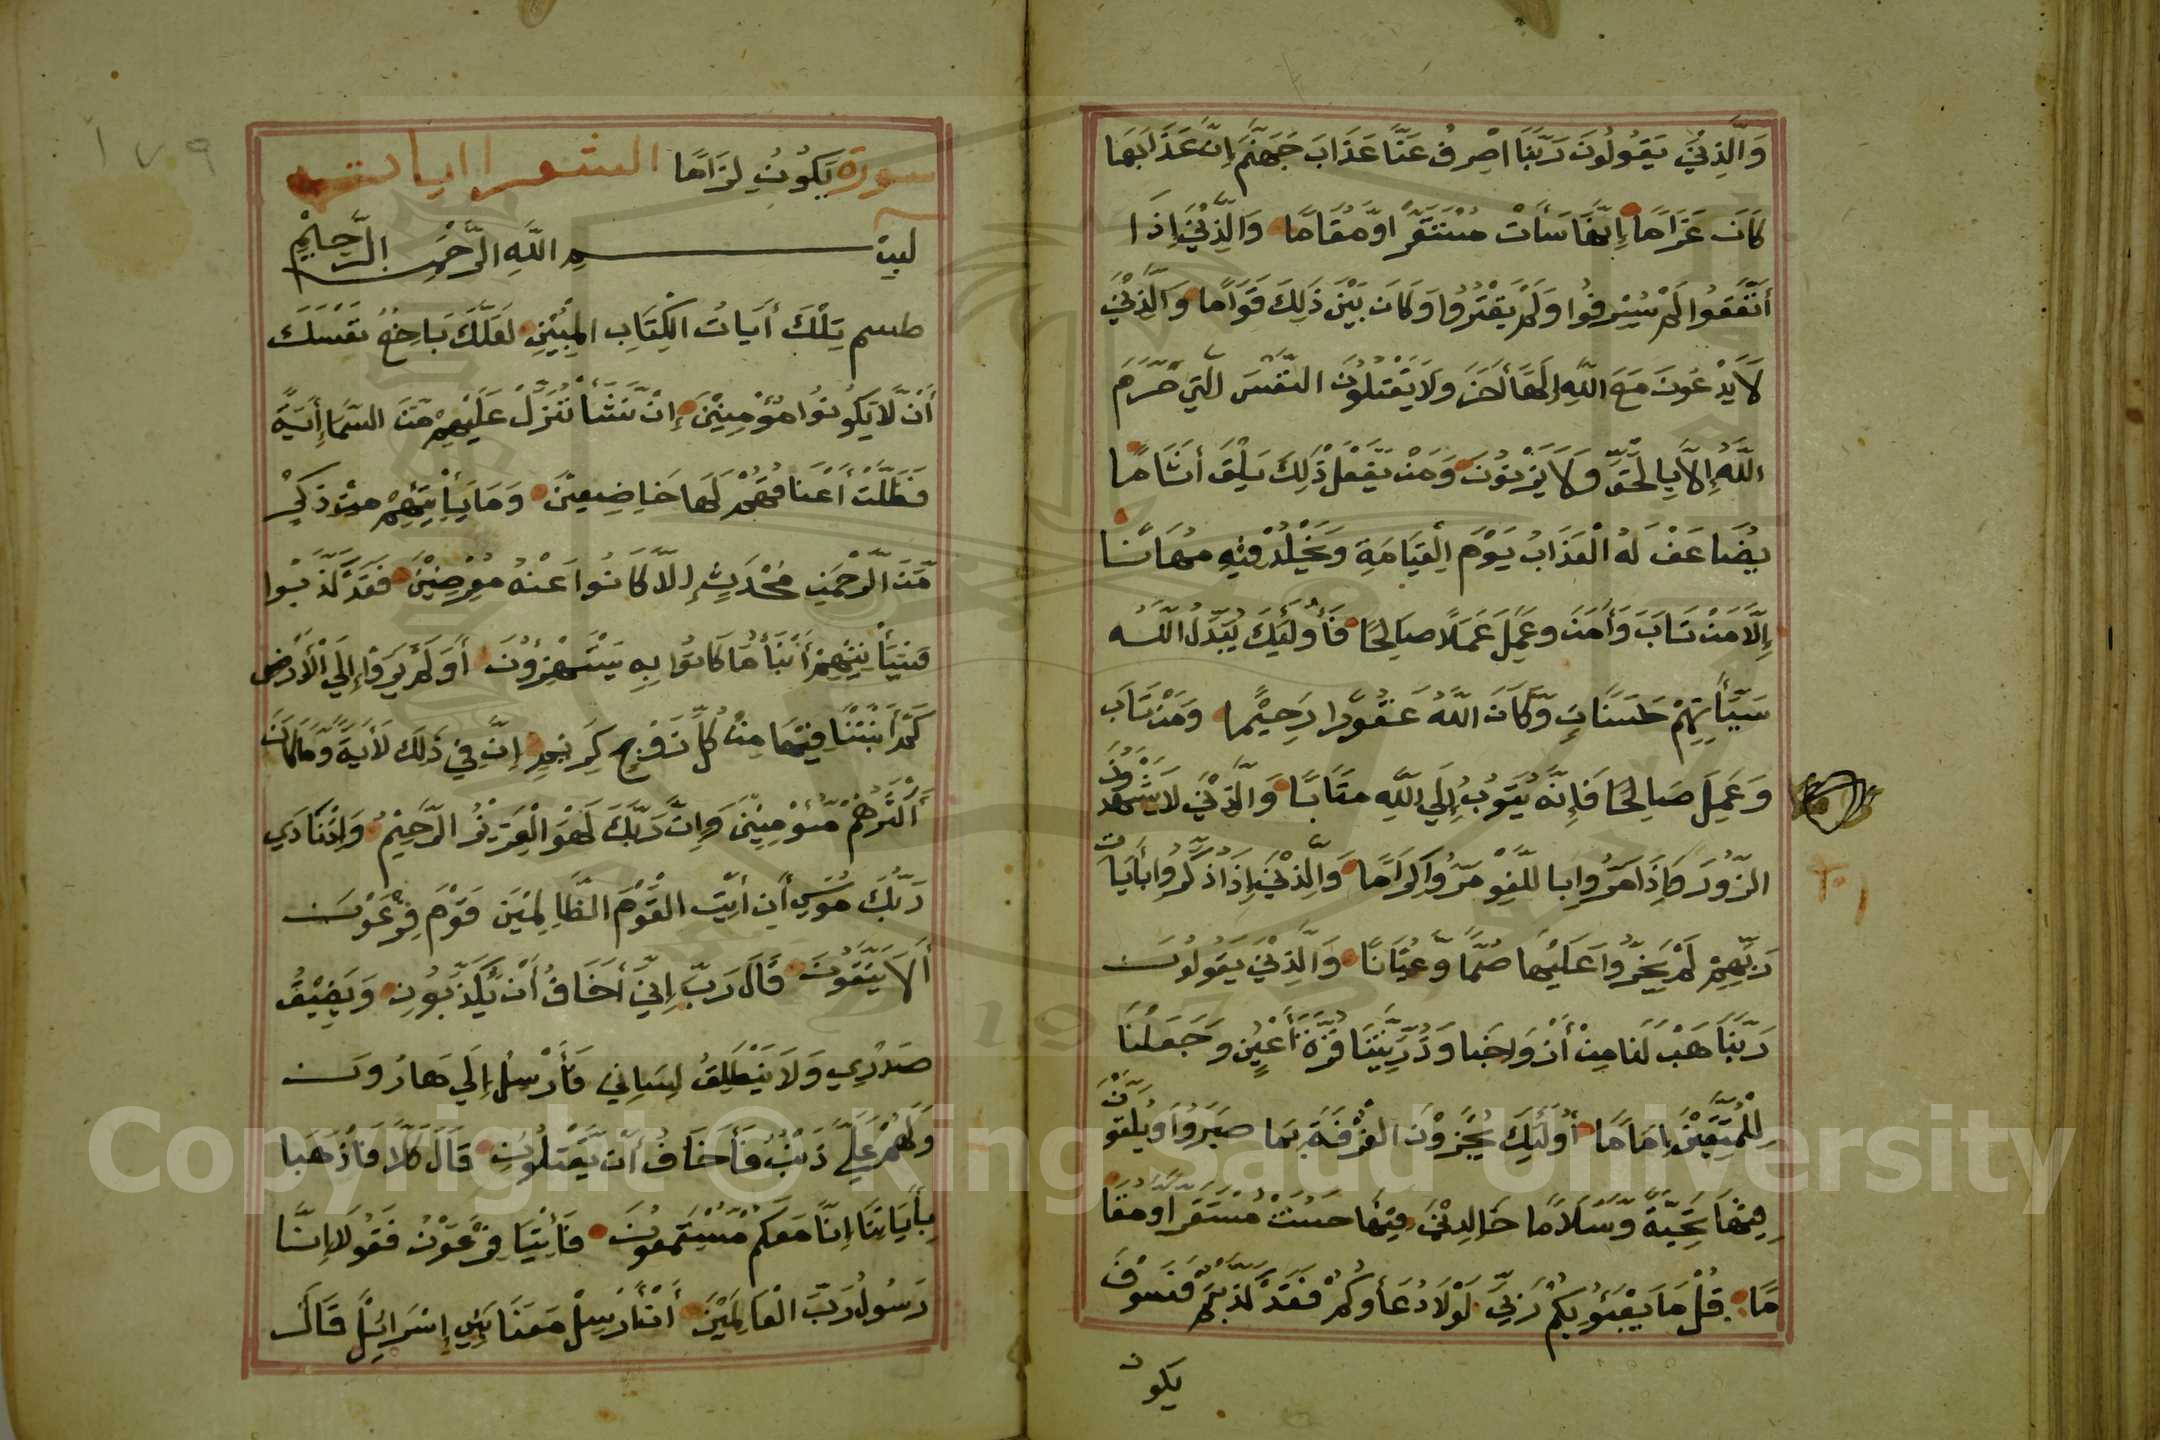 وَالَّذِيْنَ يَقُولُونَ رَبَّنَا اصْرِفْ عَنَّا عَذَابَ جَهَنَّمَ إِنَّ عَذَابَهَا
كَانَ غَرَامًا إِنَّهَا سَأَتْ مُسْتَقَرًّا وَّمُقَامًا وَالَّذِيْنَ إِذَا
أَنْفَقُوا لَمْ يُسْرِفُوا وَلَمْ يَقْتُرُوا وَكَانَ بَيْنَ ذَلِكَ قَوَامًا وَالَّذِيْنَ
لَا يَدْعُونَ مَعَ اللَّهِ إِلَهًا أَخَرَ وَلَا يَقْتُلُوْنَ النَّفْسَ الَّتِي حَرَّمَ
اللَّهُ إِلَّا بِالْحَقِّ وَلَا يَزْنُوْنَ وَمَنْ يَفْعَلْ ذَلِكَ يَلْقَ أَثَامًا
يُضَاعَفْ لَهُ الْعَذَابُ يَوْمَ الْقِيَامَةِ وَيَخْلُدْ فِيْهِ مُهَانًا
إِلَّا مَنْ تَابَ وَأَمَنَ وَعَمِلَ عَمَلًا صَالِحًا فَأُولَئِكَ يُبَدِّلُ اللَّهُ
سَيِّأَتِهِمْ حَسَنَاتٍ وَّكَانَ اللَّهُ غَفُوْرًا رَحِيْمًا وَمَنْ تَابَ
وَعَمِلَ صَالِحًا فَإِنَّهُ يَتُوبُ إِلَي اللَّهِ مَتَابًا وَالَّذِيْنَ لَا يَشْهَدُوْنَ
الزُّوْرَ وَإِذَا مَرُّوا بِاللَّغْوِ مَرُّوْا كِرَامًا وَالَّذِيْنَ إِذَا ذُكِّرُوا بِأَيَاتِ
رَبِّهِمْ لَمْ يَخِرُّوْا عَلَيْهَا صُمًّا وَّعُمْيَانًا وَالَّذِيْنَ يَقُولُوْنَ
رَبَّنَا هَبْ لَنَا مِنْ أَزْوَاجِنَا وَذُرِّيَّتِنَا قُرَّةَ أَعْيُنٍ وَجَعَلْنَا
لِلْمُتَّقِيْنَ إِمَامًا أُولَئِكَ يُجْزَوْنَ الْغُرْفَةَ بِمَا صَبَرُوْا وَيُلَقَّوْنَ
فِيْهَا تَحِيَّةً وَّسَلَامًا خَالِدِيْنَ فِيْهَا حَسُنَتْ مُسْتَقَرًّا وَمُقَا
مًا قُلْ مَا يَعْبَئُو بِكُمْ رَبِّي لَوْلَا دُعَأؤُكُمْ فَقَدْ كَذَّبْتُمْ فَسَوْفَ
يكون
١٧٩
سورة يَكُوْنُ لِزَامًا الشعرا ايات
بسم اللَّهِ الرَّحْمَنِ الرَّحِيْمِ
طسم تِلْكَ أَيَاتُ الْكِتَابِ الْمُبِيْنِ لَعَلَّكَ بَاخِعٌ نَفْسَكَ
أَنْ لَّا يَكُوْنُوا مُؤْمِنِيْنَ إِنْ نَّشَأْ نُنَزِّلْ عَلَيْهِمْ مِّنَ السَّمَاءِ أَيَةً
فَظَلَّتْ أَعْنَاقُهُمْ لَهَا خَاضِعِيْنَ وَمَا يَأْتِيْهِمْ مِنْ ذِكْرٍ
مِّنَ الرَّحْمَنِ مُحْدَثٍ إِلَّا كَانُوا عَنْهُ مُعْرِضِيْنَ فَقَدْ كَذَّبُوا
فَسَيَأْتِيْهِمْ أَنْبَأُ مَا كَانُوا بِهِ يَسْتَهْزِؤُنَ أَوَلَمْ يَرَوْا إِلَي الْأَرْضِ
كَمْ أَنْبَتْنَا فِيْهَا مِنْ كُلِّ زَوْجٍ كَرِيْمٍ إِنَّ فِيْ ذَلِكَ لَأَيَةً وَّمَا كَانَ
أَكْثَرُهُمْ مُّؤْمِنِيْنَ وَإِنَّ رَبَّكَ لَهُوَ الْعَزِيْزُ الرَّحِيْمُ وَإِذْ نَادَي
رَبُّكَ مُوْسَي أَنِ ائْتِ الْقَوْمَ الظَّالِمِيْنَ قَوْمَ فِرْعَوْنَ
أَلَا يَتَّقُوْنَ قَالَ رَبِّ إِنِّي أَخَافُ أَنْ يُّكَذِّبُوْنِ وَيَضِيْقُ
صَدْرِي وَلَا يَنْطَلِقُ لِسَانِي فَأَرْسِلْ إِلَي هَارُونَ
وَلَهُمْ عَلَيَّ ذَنْبٌ فَأَخَافُ أَنْ يَّقْتُلُوْنِ قَالَ كَلَّا فَاذْهَبَا
بِأَيَاتِنَا إِنَّا مَعَكُمْ مُّسْتَمِعُوْنَ فَأْتِيَا فِرْعَوْنَ فَقُوْلَا إِنَّا
رَسُوْلُ رَبِّ الْعَالَمِيْنَ أَنْ أَرْسِلْ مَعَنَا بَنِي إِسْرَائِيْلَ قَالَ
Copyright © King Saud University